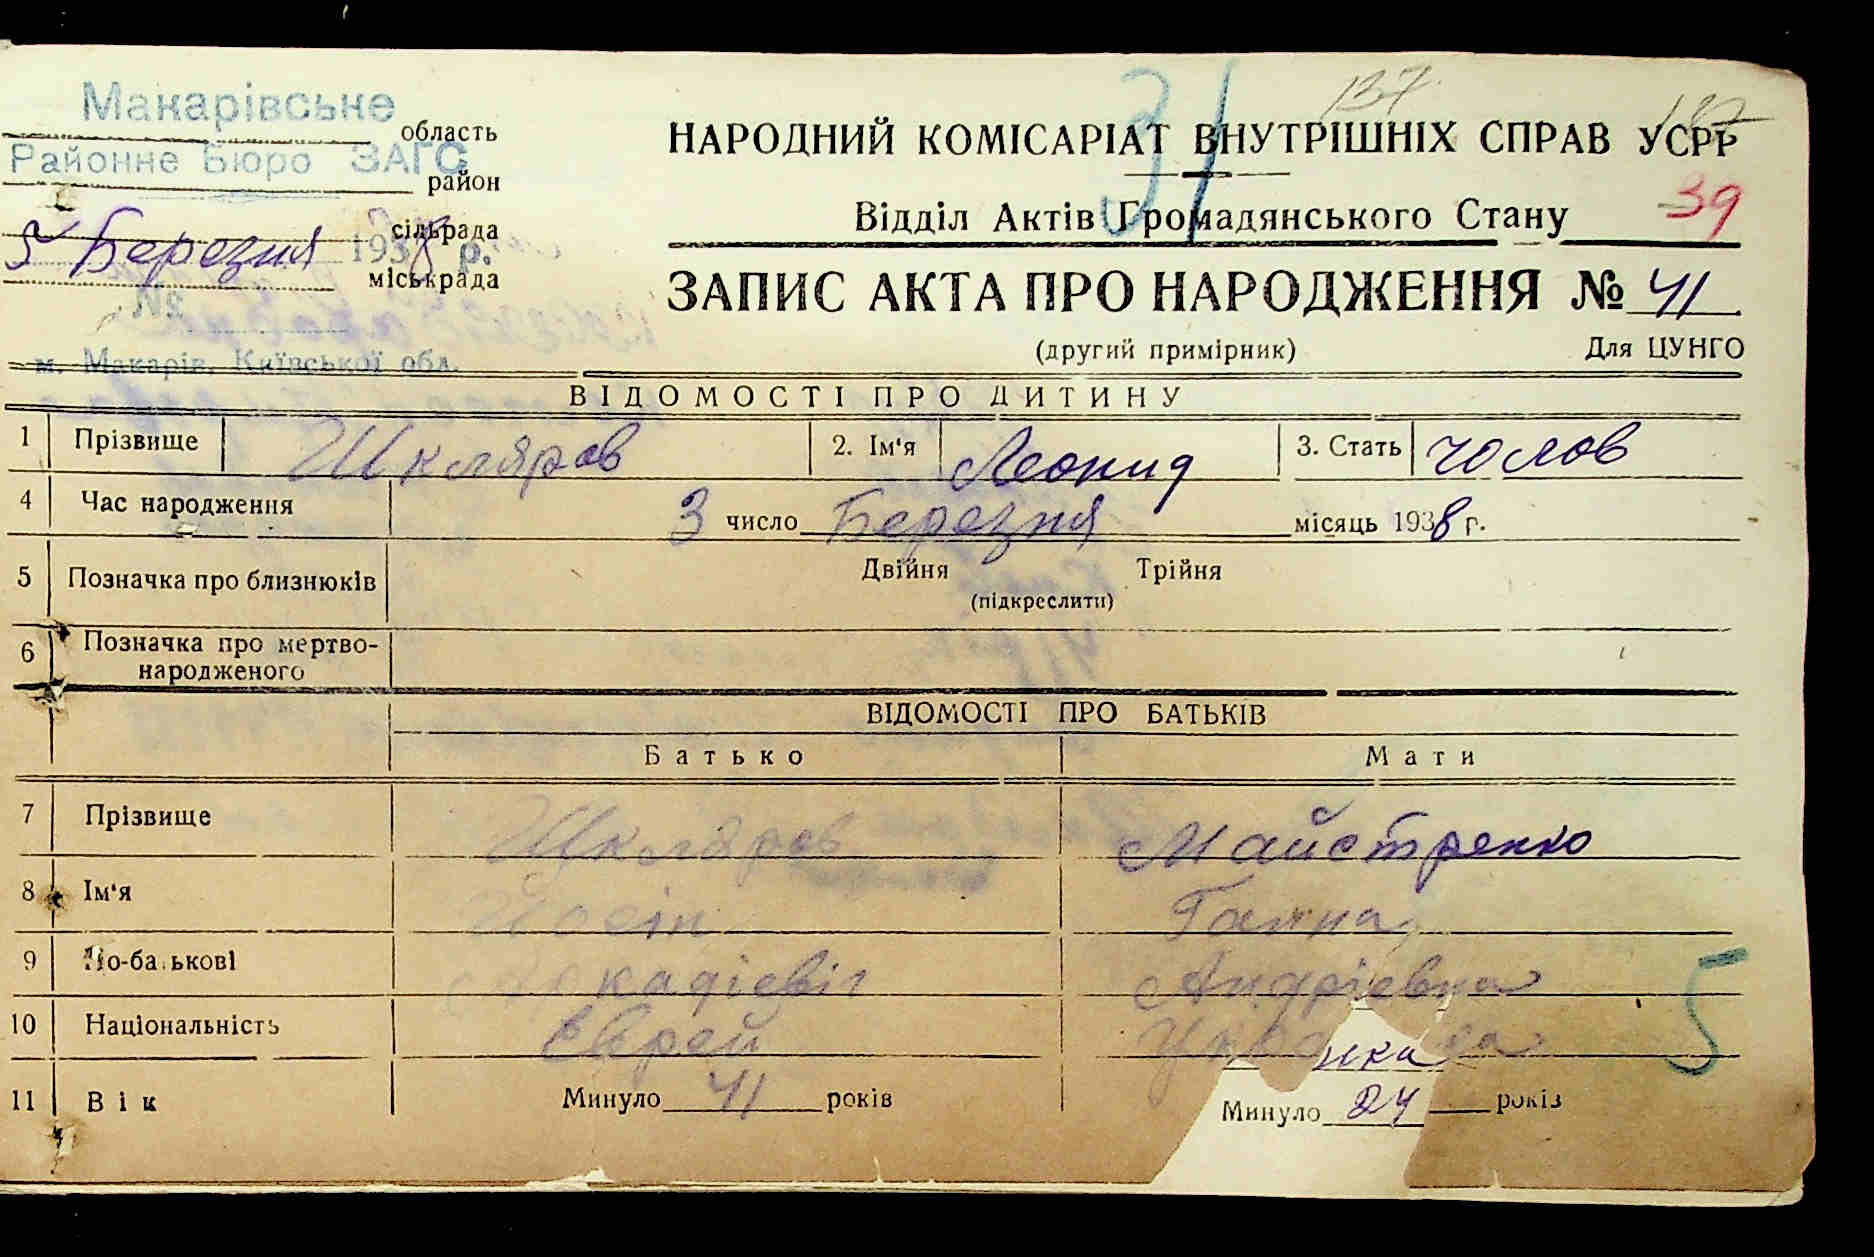 Макарівське
область
Районне Бюро ЗАГС
район
сільрада
5 Березня 1938 р.
міськрада
№
м. Макарів, Київської обл.
31
137
НАРОДНИЙ КОМІСАРІАТ ВНУТРІШНІХ СПРАВ УСРР
Відділ Актів Громадянського Стану
39
ЗАПИС АКТА ПРО НАРОДЖЕННЯ № 41
(другий примірник) Для ЦУНГО
ВІДОМОСТІ ПРО ДИТИНУ
1 Прізвище Шкляров 2. Ім'я Леонид 3. Стать чолов
4 Час народження 3 число Березня місяць 1938 р.
5 Позначка про близнюків Двійня Трійня
(підкреслити)
6 Позначка про мертво-
народженого
ВІДОМОСТІ ПРО БАТЬКІВ
Батько Мати
7 Прізвище Шкляров Майстренко
8 Ім'я Йосіп Ганна
9 По-батькові Аркадієвіч Андрієвна
10 Національність Єврей
нка
11 Вік Минуло 41 років Минуло 24 років
5